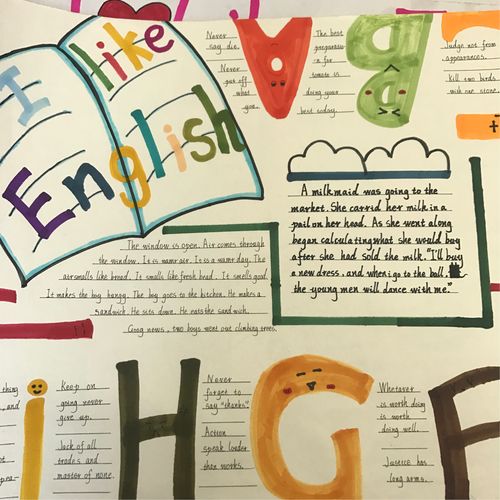 I like
English
Never
say die.
Never
put off
what
you.
The best
preparatio
n for
tomoto is
doing your
best today.
Judge not from
appearances.
Kill two birds
with one stone.
A milkmaid was going to the
market. She carrid her milk in a
pail on her head. As she went along
began calculating what she would buy
after she had sold the milk. "I'll buy
a new dress, and when i go to the ball,
the young men will dance with me."
The window is open. Air comes through
the window. It is warm air. It is a warm day. The
air smalls like bread. It smalls like fresh brad. It smells good.
It makes the boy hangy. The boy goes to the kitchen. He makes a
sandwich. He sits down. He eats the sandwich.
Goog nows, two boys went out climbing trees.
thing
, and
i
Keep on
going never
give up.
Jack of all
trades and
master of none.
H
Never
forget to
say "thanks".
Action
speak louder
than works.
G
Whatever
is worth doing
is worth
doing well.
Justice has
long arms.
F